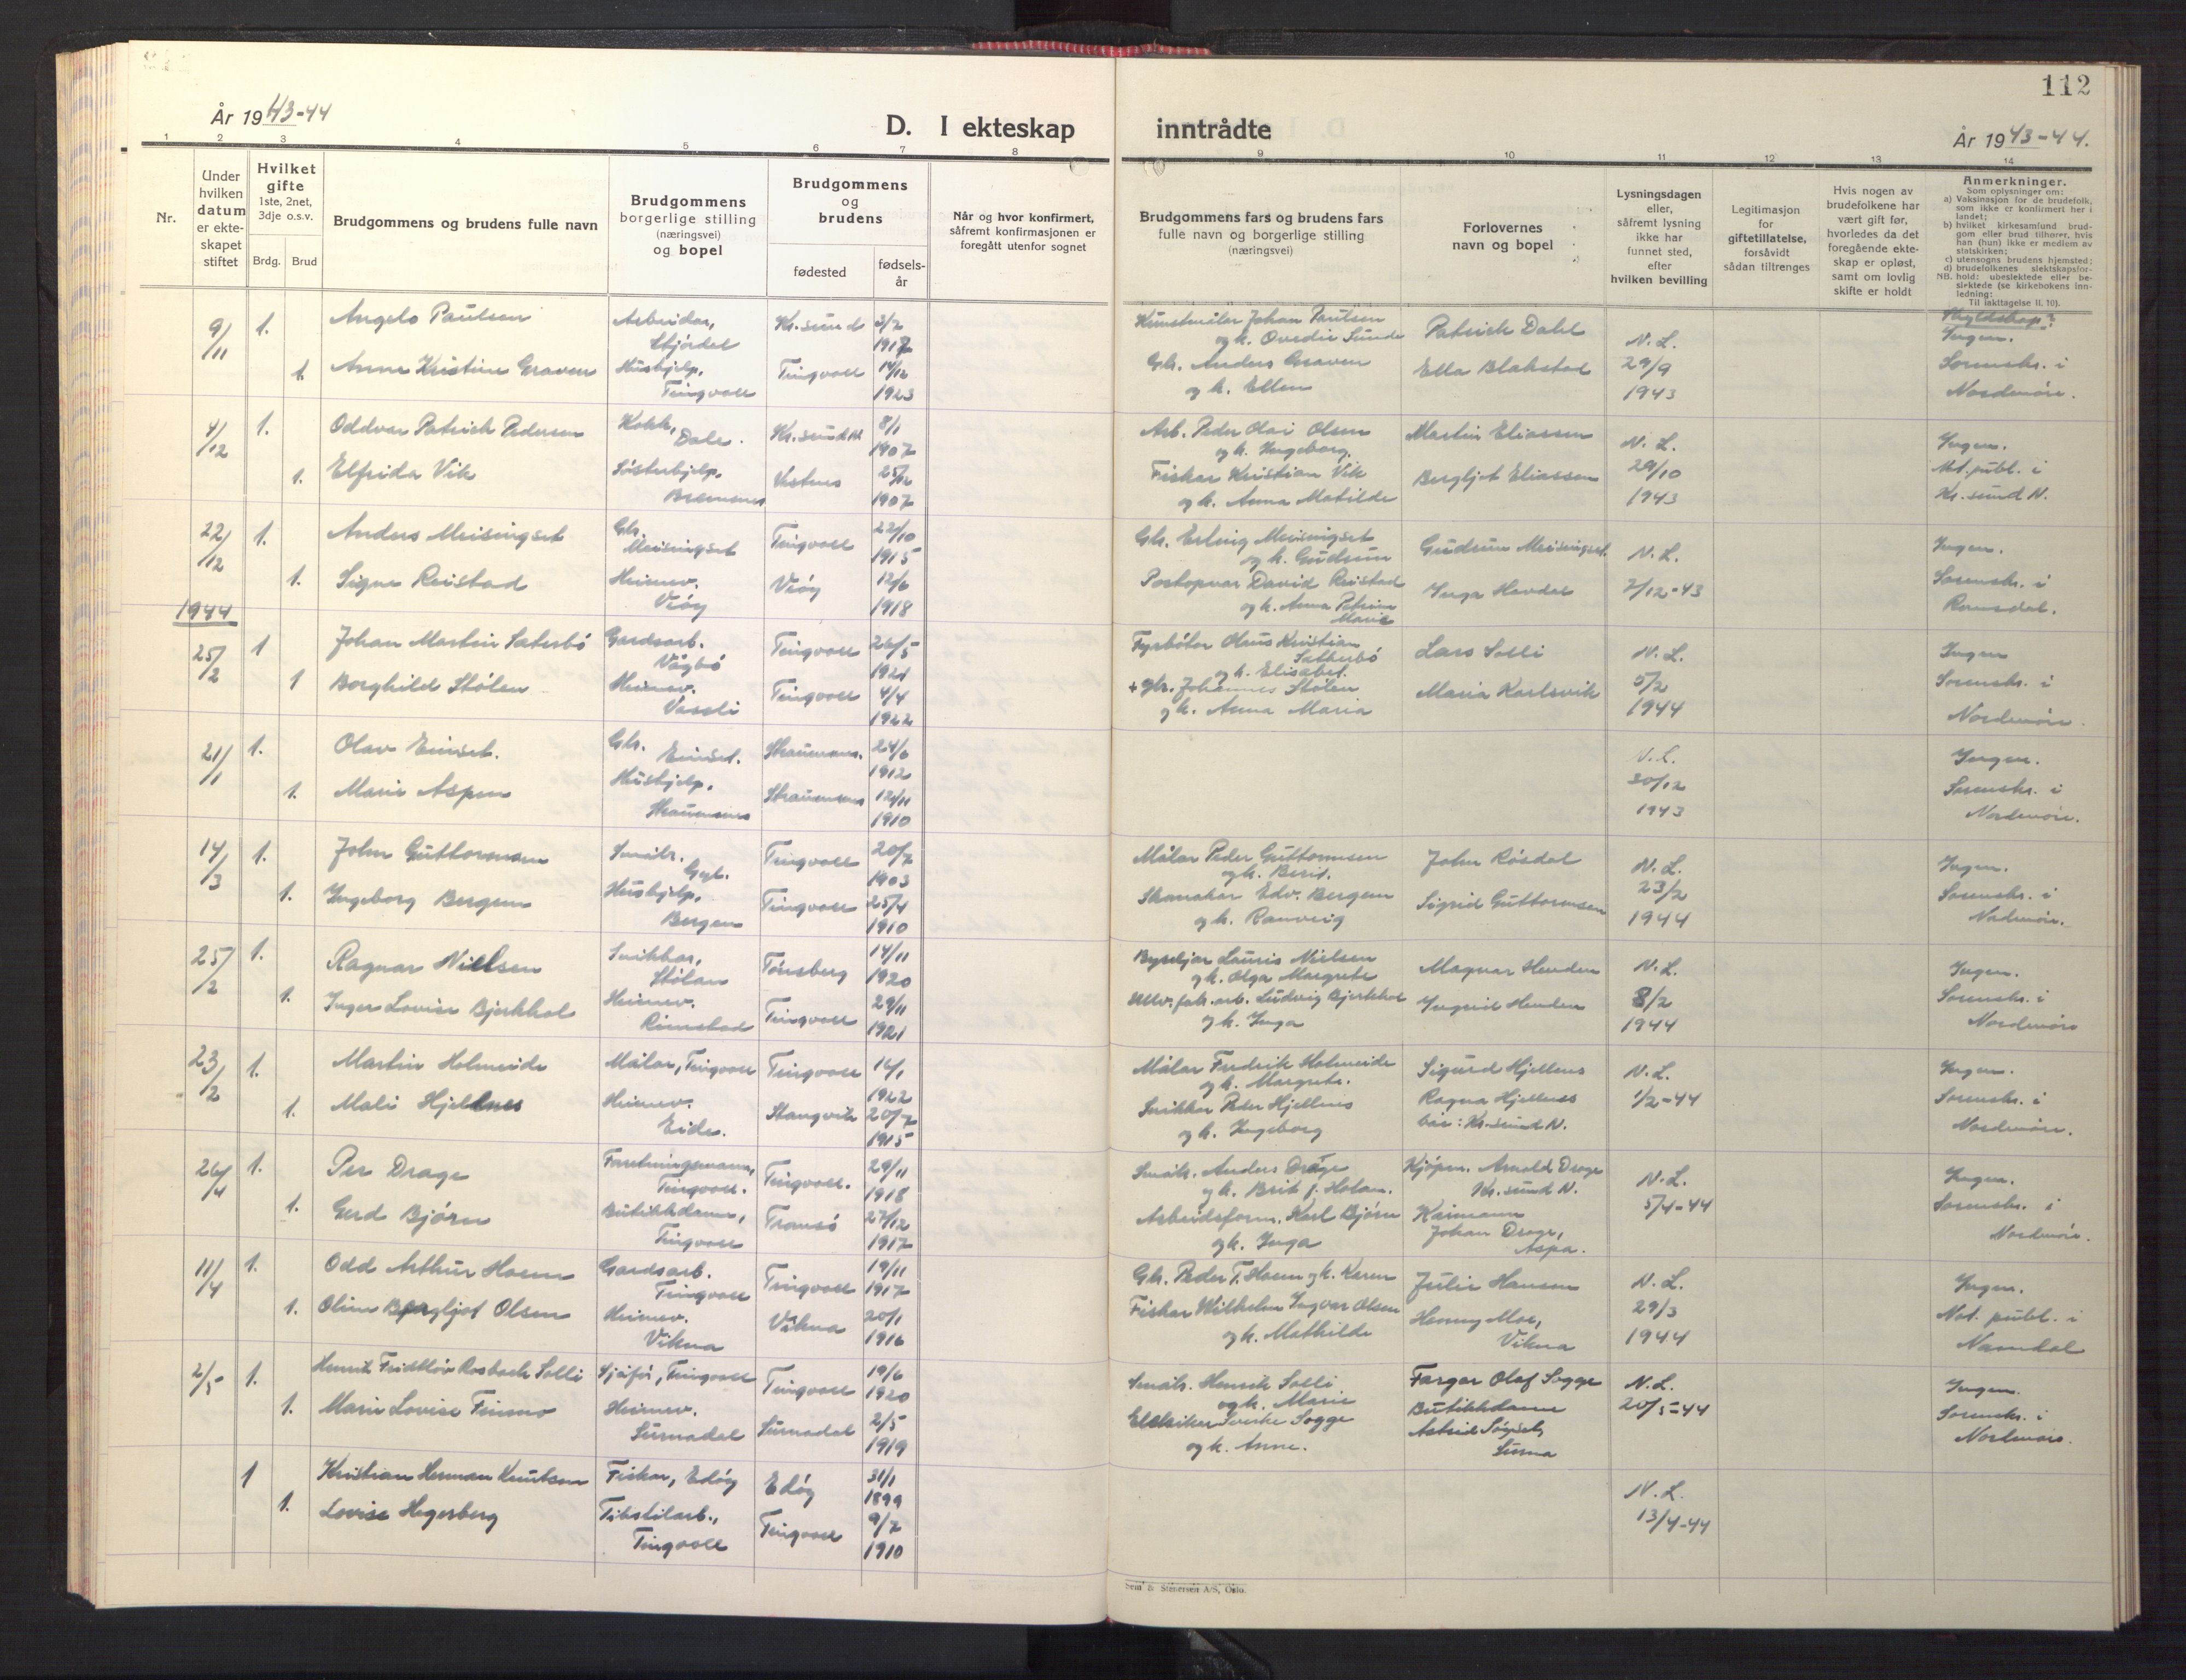 112
År 1943-44
D. I ekteskap inntrådte
År 1943-44.
1 2 3 4 5 6 7 8 9 10 11 12 13 14
Nr.
Under hvilken datum er ekte- skapet stiftet
Hvilket gifte 1ste, 2net, 3dje o.s.v.
Brdg. Brud
Brudgommens og brudens fulle navn
Brudgommens borgerlige stilling (næringsvei) og bopel
Brudgommens og brudens
fødested
fødsels- år
Når og hvor konfirmert, såfremt konfirmasjonen er foregått utenfor sognet
Brudgommens fars og brudens fars fulle navn og borgerlige stilling (næringsvei)
Forlovernes navn og bopel
Lysningsdagen eller, såfremt lysning ikke har funnet sted, efter hvilken bevilling
Legitimasjon for giftetillatelse, forsåvidt sådan tiltrenges
Hvis nogen av brudefolkene har vært gift før, hvorledes da det foregående ekte- skap er opløst, samt om lovlig skifte er holdt
Anmerkninger.
Som oplysninger om:
a) Vaksinasjon for de brudefolk, som ikke er konfirmert her i landet;
b) hvilket kirkesamfund brud- gom eller brud tilhører, hvis han (hun) ikke er medlem av statskirken;
c) utensogns brudens hjemsted;
d) brudefolkenes slektskapsfor- hold: ubeslektede eller be- slektede (se kirkebokens inn- ledning:
NB.
Til iakttagelse II. 10).
9/11 1. Angelo Paulsen Arbeidar, Stjørdal Kr.sund 3/2 1917 Kunstmålar Johan Paulsen og k. Ovedie Sunde Patrick Dahl N. L. Skyldskap? Ingen.
1. Anne Kristine Graven Hushjelp, Tingvoll Tingvoll 14/12 1923 Gbr. Anders Graven og k. Ellen Ella Blakstad 29/9 1943 Sorenskr. i Nordmøre.
4/12 1. Oddvar Patrick Pedersen Kokk, Dale. Kr.sund N 8/1 1907 Arb. Peder Olai Olsen og k. Ingeborg. Martin Eliassen N. L. Ingen.
1. Elfrida Vik Søsterhjelp, Bremsnes Vestnes 25/12 1907 Fiskar Kristian Vik og k. Anna Matilde Bergljot Eliassen 29/10 1943 Not. publ. i Kr.sund N.
22/12 1. Anders Meisingset Gbr. Meisingset Tingvoll 22/10 1915 Gbr. Erling Meisingset og k. Gudrun Gudrun Meisingset. N. L. Ingen.
1. Signe Reistad Heimev. Veøy Veøy 12/6 1918 Postopnar David Reistad og k. Anna Petrine Marie Inga Hovdal 7/12-43 Sorenskr. i Romsdal.
1944
25/2 1 Johan Martin Saterbø Gardsarb. Vågbø Tingvoll 26/5 1921 Fyrbøtar Oluf Kristian Satherbø og k. Elisabet. Lars Solli N. L. Ingen
1 Borghild Stølen Heimev. Vassli Tingvoll 4/4 1922 + gbr. Johannes Stølen og k. Anna Maria Maria Karlsvik 5/2 1944 Sorenskr. i Nordmøre.
21/1 1. Olav Einset. Gbr. Einset. Straumsnes. 24/6 1912 N. L. Ingen.
1. Marie Aspen Hushjelp, Straumsnes Straumsnes 12/11 1910 30/12 1943 Sorenskr. i Nordmøre.
14/3 1. John Guttormsen Småbr. Gyl. Tingvoll 20/7 1903 Målar Peder Guttormsen og k. Berit. John Røsdal N. L. Ingen.
1. Ingeborg Bergem Hushjelp, Bergem Tingvoll 25/4 1910 Skomakar Edv. Bergem og k. Ranveig Sigrid Guttormsen 23/2 1944 Sorenskr. i Nordmøre.
25/2 1. Ragnar Nielsen Snikkar, Stølan Tønsberg 14/11 1920 Lauris Nielsen og k. Olga Margrete Magnar Henden N. L. Ingen.
1. Inger Lovise Bjerkhol Heimev. Rimstad Tingvoll 29/11 1921 Ullv. fab. arb. Ludvig Bjerkhol og k. Inga Ingrid Henden 8/2 1944 Sorenskr. i Nordmøre
23/2 1. Martin Holmeide Målar, Tingvoll Tingvoll 14/1 1922 Målar Fredrik Holmeide og k. Margrete. Sigurd Hjellnes N. L. Ingen.
1. Mali Hjellnes Heimev. Eide. Stangvik 20/7 1915 Snikkar Peder Hjellnes og k. Ingeborg Ragna Hjellnes båe: Kr.sund N. 1/2-44 Sorenskr. i Nordmøre.
26/4 1. Per Drage Forretningsmann, Tingvoll. Tingvoll. 29/11 1918 Småbr. Anders Drage og k. Brit f. Holam. Kjøpm. Arnold Drage Kr.sund N. N. L. Ingen.
1. Gerd Bjørn Butikkdame, Tingvoll Tromsø 27/12 1917 Arbeidsform. Karl Bjørn og k. Inga Kaimann Johan Drage, Aspa. 5/4-44 Sorenskr. i Nordmøre.
11/4 1. Odd Arthur Hoem Gardsarb. Tingvoll Tingvoll 19/11 1917 Gbr. Peder T. Hoem og k. Karen Julie Hansen N. L. Ingen.
1. Oline Bergljot Olsen Heimev. Vikna Vikna 20/1 1916 Fiskar Wilhelm Ingvar Olsen og k. Mathilde Henny Moe, Vikna 29/3 1944 Not. publ. i Namdal
2/5 1. Henrik Fridthjov Rosbach Solli Sjåfør, Tingvoll Tingvoll 19/6 1920 Småbr. Henrik Solli og k. Marie Fargar Olaf Sogge N. L. Ingen.
1. Marie Lovise Finsmo Heimev. Surnadal Surnadal 2/5 1919 Elektriker Sverke Sogge og k. Anne. Butikkdame Astrid Surna 20/5-44 Sorenskr. i Nordmøre.
1 Kristian Herman Knutsen Fiskar, Edøy Edøy 31/1 1899 N. L.
1. Lovise Hegerberg Tekstilarb., Tingvoll Tingvoll 9/7 1910 13/4-44
Sem & Stenersen A/S, Oslo.